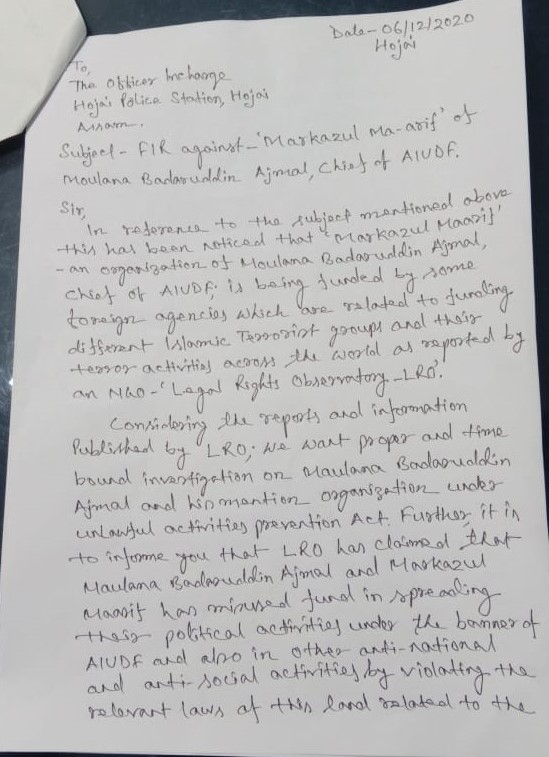 Date- 06/12/2020
Hojai
To,
The Officer Incharge
Hojai Police Station, Hojai
Assam.
Subject - FIR against - 'Markazul Ma-arif' of
Moulana Badaruddin Ajmal, Chief of AIUDF.
Sir,
In reference to the subject mentioned above
this has been noticed that "Markazul Maarif'
- an organization of Moulana Badaruddin Ajmal,
Chief of AIUDF; is being funded by some
foreign agencies which are related to funding
different Islamic Terrorist groups and their
terror activities across the world as reported by
an NGO - 'Legal Rights Observatory - LRO'.
Considering the reports and information
Published by LRO; we want proper and time
bound investigation on Maulana Badaruddin
Ajmal and his mention organization under
unlawful activities prevention Act. Further, it is
to informe you that LRO has claimed that
Maulana Badaruddin Ajmal and Markazul
Maarif has misused fund in spreading
their political activities under the banner of
AIUDF and also in other anti-national
and anti-social activities by violating the
relevant laws of this land related to the